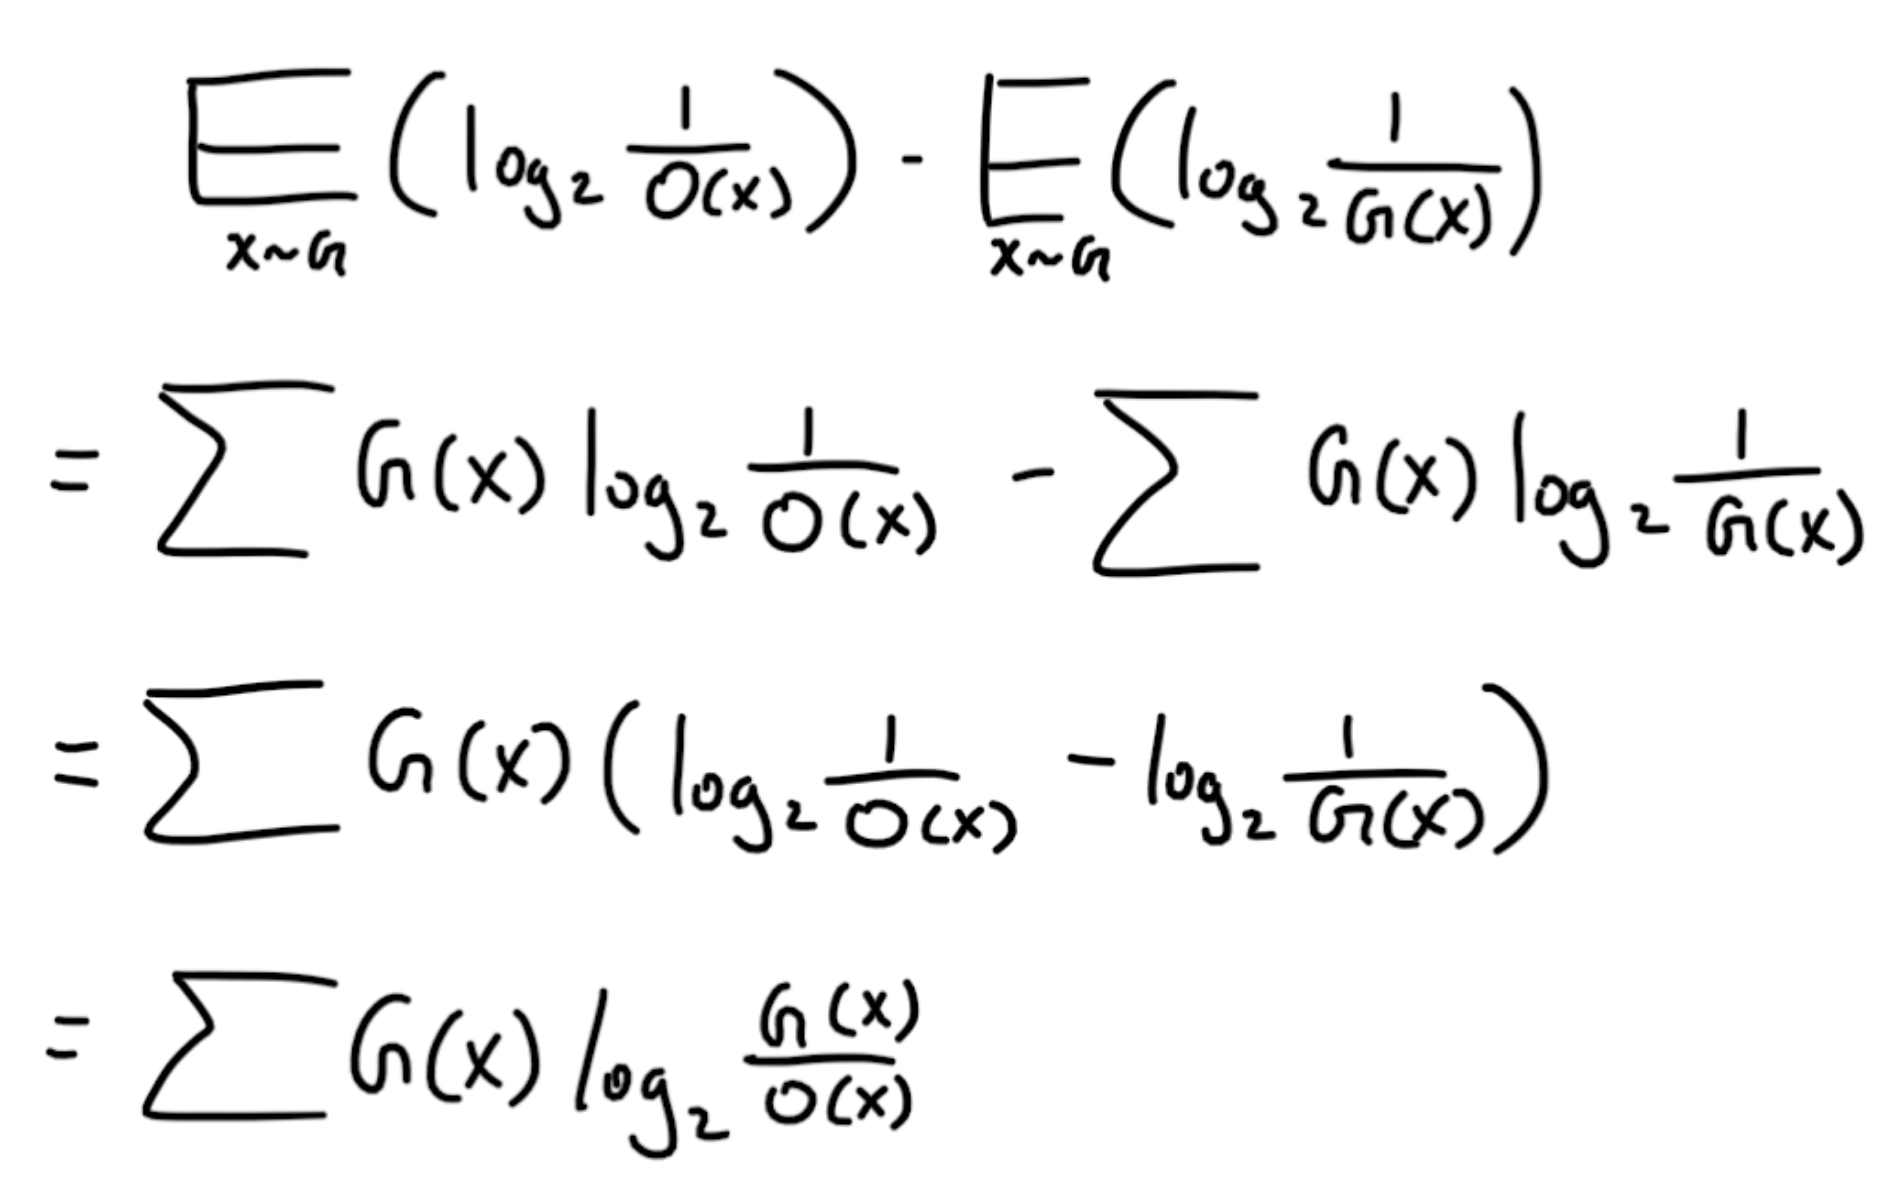 E_{x~G} (log₂ 1/O(x)) - E_{x~G} (log₂ 1/G(x))
= Σ G(x) log₂ 1/O(x) - Σ G(x) log₂ 1/G(x)
= Σ G(x) (log₂ 1/O(x) - log₂ 1/G(x))
= Σ G(x) log₂ G(x)/O(x)